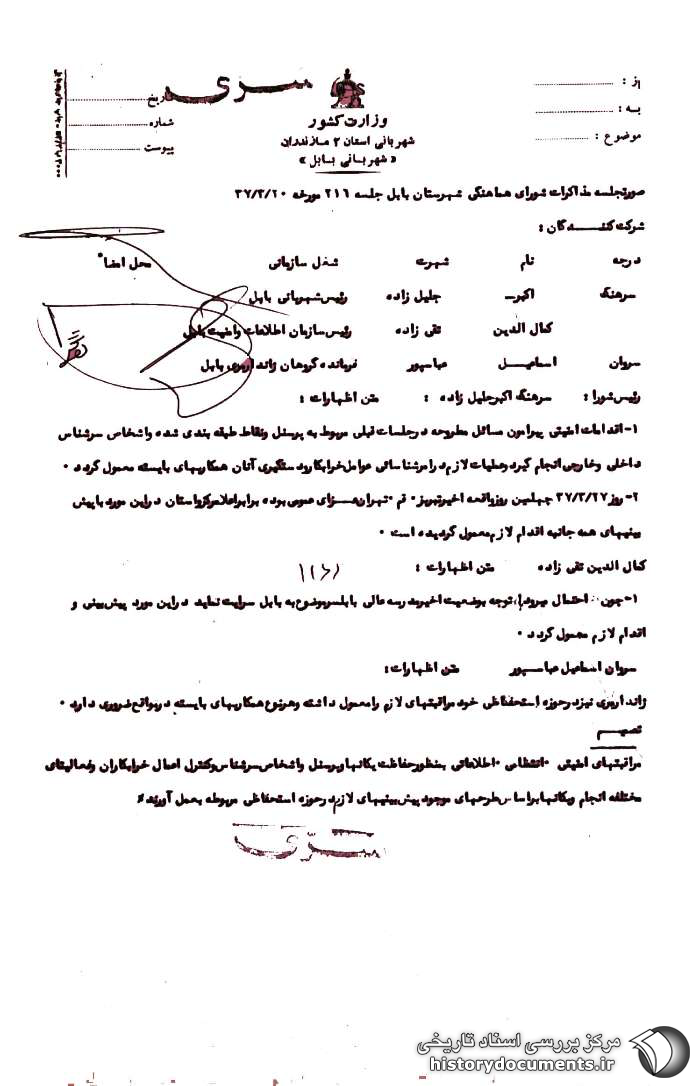 از :
به :
موضوع :
سری
وزارت کشور
شهربانی استان ۲ مازندران
« شهربانی بابل »
تاریخ
شماره
پیوست
صورتجلسه مذاکرات شورای هماهنگی شهرستان بابل جلسه ۲۱٦ مورخه ۳۷/۳/۲۰
شرکت کننده گان :
درجه نام شهرت شغل سازمانی محل امضاء
سرهنگ اکبر جلیل زاده رئیس شهربانی بابل
کمال الدین تقی زاده رئیس سازمان اطلاعات وامنیت بابل
سروان اسماعیل عباسپور فرمانده گروهان ژاندارمری بابل
رئیس شورا : سرهنگ اکبر جلیل زاده : متن اظهارات :
۱- اقدامات امنیتی پیرامون مسائل مطروحه در جلسات قبلی مربوط به پرسنل ونقاط طبقه بندی شده واشخاص سرشناس
داخلی وخارجی انجام گیرد وعملیات لازم در امر شناسائی عوامل خرابکار ودستگیری آنان همکاریهای بایسته معمول گردد ۰
۲- روز ۳۷/۳/۲۷ چهلمین روز واقعه اخیر تبریز ۰ قم ۰ تهران عزای عمومی بوده برابر اعلام مرکز واستان در این مورد با پیش
بینیهای همه جانبه اقدام لازم معمول گردیده است ۰
کمال الدین تقی زاده متن اظهارات :
۱- چون احتمال میرود با توجه بوضعیت اخیر مدرسه عالی بابلسر موضوع به بابل سرایت نماید در این مورد پیش بینی و
اقدام لازم معمول گردد ۰
سروان اسماعیل عباسپور متن اظهارات :
ژاندارمری نیز در حوزه استحفاظی خود مراقبتهای لازم را معمول داشته وهر نوع همکاریهای بایسته در مواقع ضروری دارد ۰
تصمیم
مراقبتهای امنیتی ۰ انتظامی ۰ اطلاعاتی بمنظور حفاظت یکانها وپرسنل واشخاص سرشناس وکنترل اعمال خرابکاران وفعالیتهای
مختلفه انجام ویکانها بر اساس طرحهای موجود پیش بینیهای لازم در حوزه استحفاظی مربوطه بعمل آورند
سری
مرکز بررسی اسناد تاریخی
historydocuments.ir